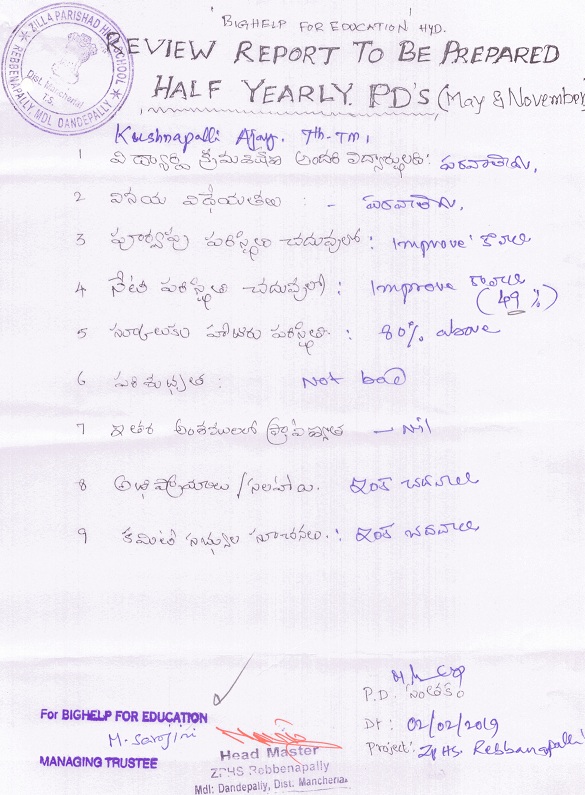 BIGHELP FOR EDUCATION HYD.
REVIEW REPORT TO BE PREPARED
HALF YEARLY PD'S (May & November)
ZILLA PARISHAD HIGH SCHOOL
Dist. Mancherial
T.S.
REBBENAPALLY, MDL DANDEPALLY
Krishnapalli Ajay. 7th-TM,
1 విద్యార్థి క్రమశిక్షణ ఇతర విద్యార్థులతో: పరవాలేదు.
2 వినయ విధేయతలు : - పరవాలేదు.
3 పూర్వపు పరిస్థితి చదువులో : Improve కావాలి
4 నేటి పరిస్థితి చదువులో : Improve కావాలి
(49 %)
5 స్కూలుకు హాజరు పరిస్థితి : 80% above
6 పరిశుభ్రత : Not bad
7 ఇతర అంశములలో ప్రావీణ్యత - Nil
8 అభిప్రాయాలు / సలహాలు. ఇంకా చదవాలి
9 కమిటీ సభ్యుల సూచనలు. : ఇంకా చదవాలి
P.D. సంతకం
For BIGHELP FOR EDUCATION
M. Sarojini
MANAGING TRUSTEE
Head Master
ZPHS Rebbenapally
Mdl: Dandepally, Dist. Mancherial
Dt : 02/02/2019
Project: ZPHS. Rebbanapalli